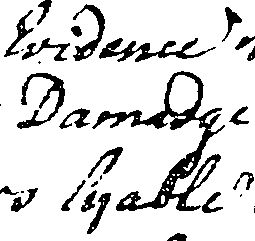 Evidence
Damadge
lyable